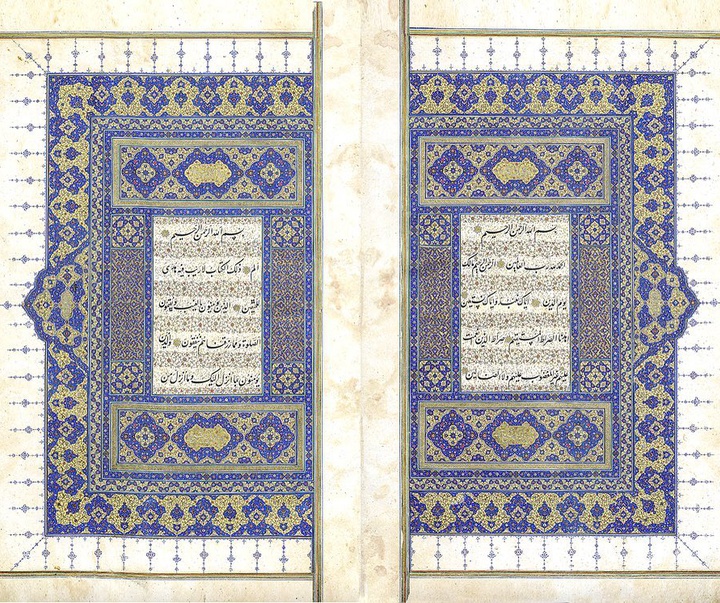 بسم الله الرحمن الرحيم
الحمد لله رب العالمين الرحمن الرحيم مالك
يوم الدين اياك نعبد واياك نستعين
اهدنا الصراط المستقيم صراط الذين انعمت
عليهم غير المغضوب عليهم ولا الضالين
بسم الله الرحمن الرحيم
الم ذلك الكتاب لا ريب فيه هدى
للمتقين الذين يؤمنون بالغيب ويقيمون
الصلوة ومما رزقناهم ينفقون والذين
يؤمنون بما انزل اليك وما انزل من